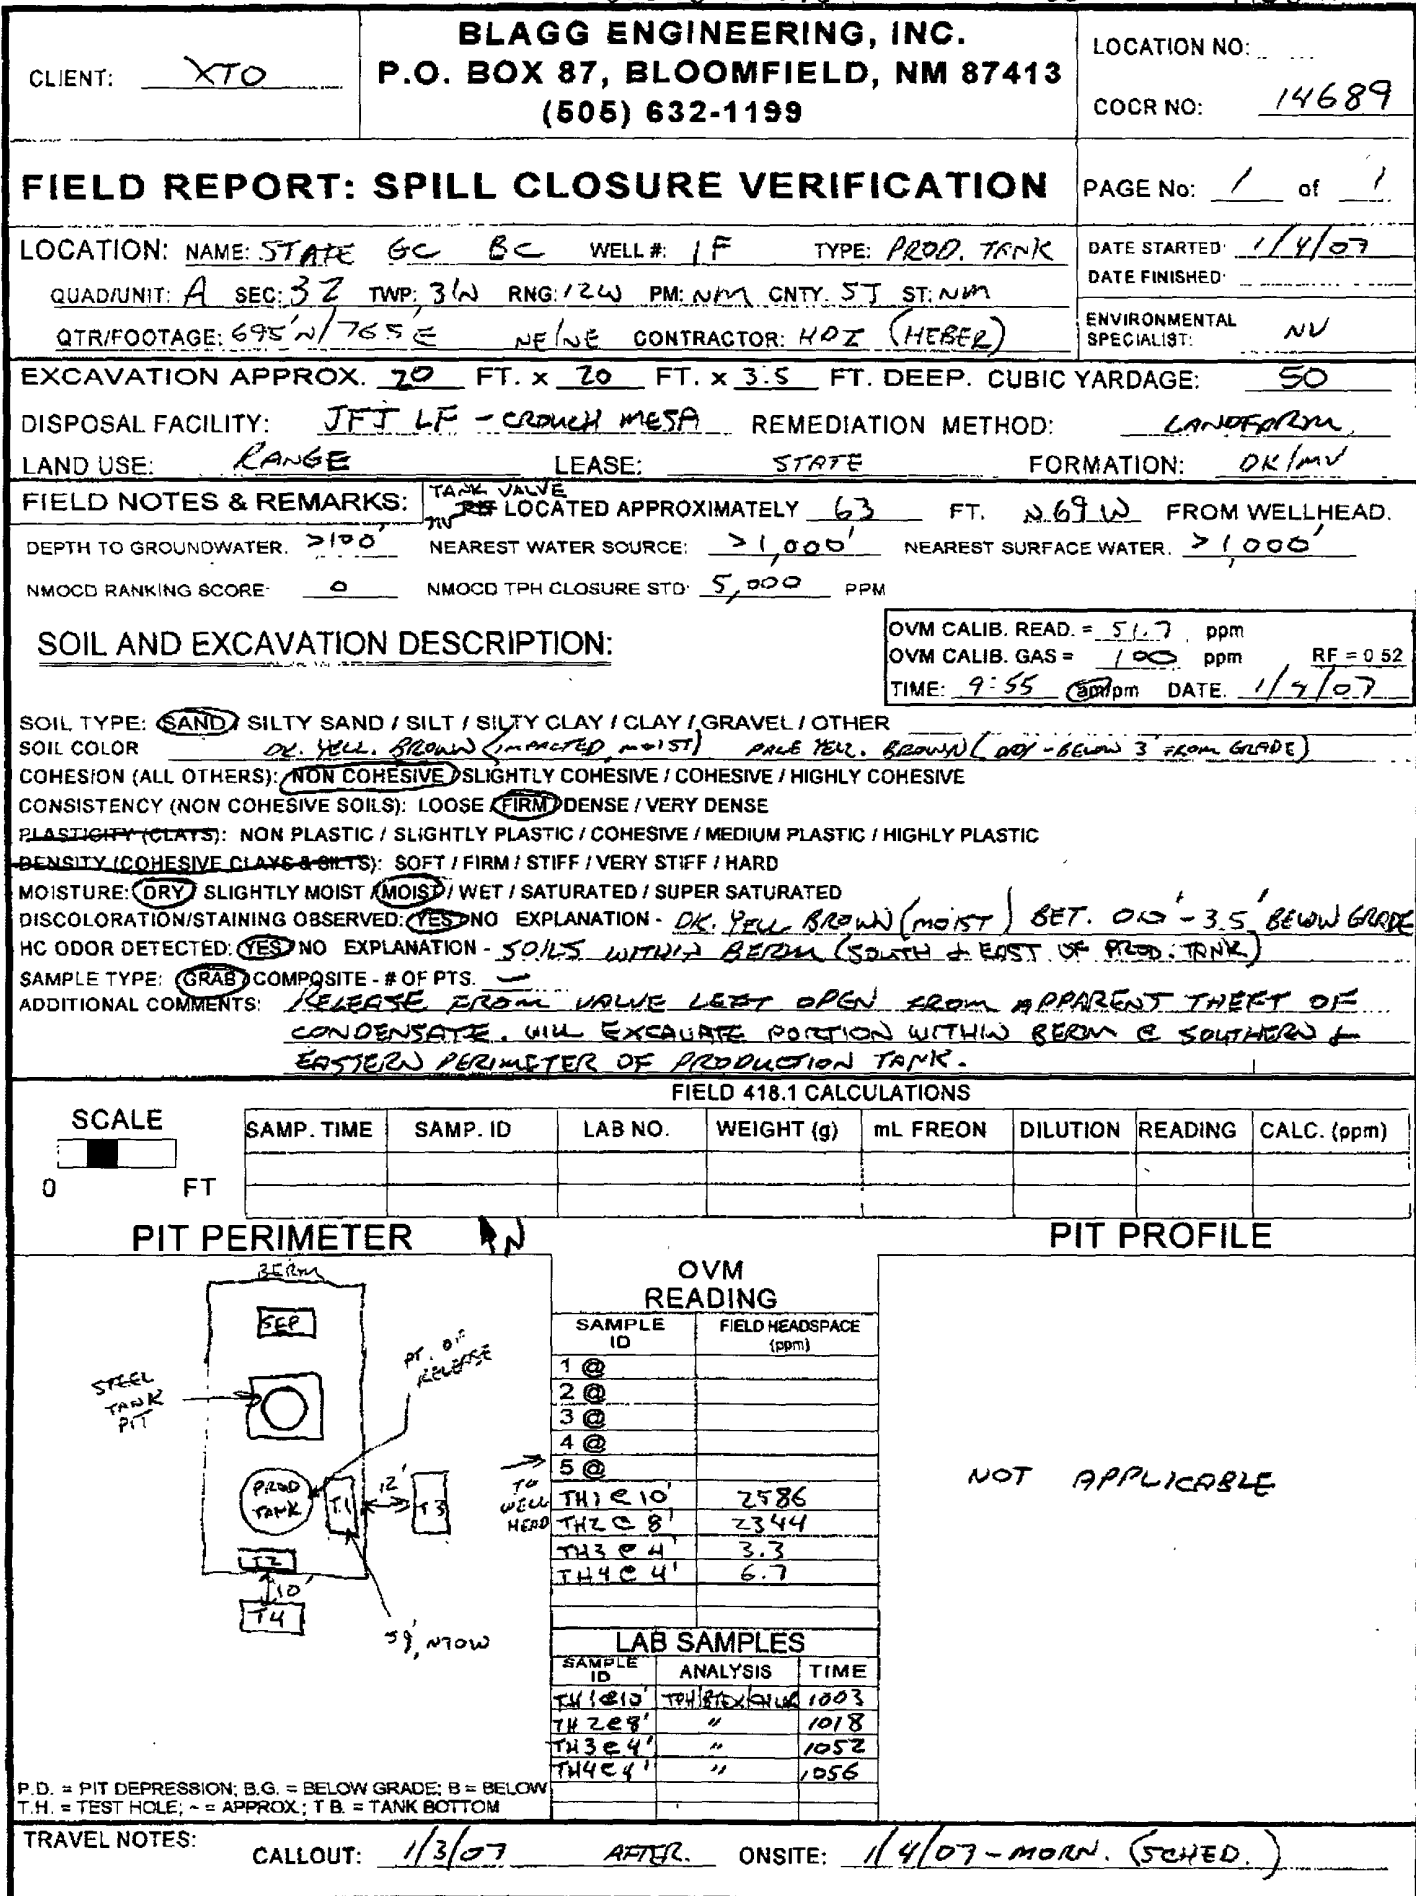 BLAGG ENGINEERING, INC.
P.O. BOX 87, BLOOMFIELD, NM 87413
(505) 632-1199
CLIENT: XTO
LOCATION NO:
COCR NO: 14689
FIELD REPORT: SPILL CLOSURE VERIFICATION
PAGE No: 1 of 1
LOCATION: NAME: STATE GC BC WELL #: 1F TYPE: PROD. TANK
DATE STARTED: 1/4/07
DATE FINISHED:
QUAD/UNIT: A SEC: 32 TWP: 31N RNG: 12W PM: NM CNTY. SJ ST: NM
QTR/FOOTAGE: 695'N/765'E NE/NE CONTRACTOR: HDI (HEBER)
ENVIRONMENTAL SPECIALIST: NV
EXCAVATION APPROX. 20 FT. x 20 FT. x 3.5 FT. DEEP. CUBIC YARDAGE: 50
DISPOSAL FACILITY: JFJ LF - CROUCH MESA REMEDIATION METHOD: LANDFARM
LAND USE: RANGE LEASE: STATE FORMATION: DK/MV
FIELD NOTES & REMARKS: TANK VALVE NV LOCATED APPROXIMATELY 63 FT. N69W FROM WELLHEAD.
DEPTH TO GROUNDWATER. >100' NEAREST WATER SOURCE: >1,000' NEAREST SURFACE WATER. >1,000'
NMOCD RANKING SCORE 0 NMOCD TPH CLOSURE STD 5,000 PPM
SOIL AND EXCAVATION DESCRIPTION:
OVM CALIB. READ. = 51.7 ppm
OVM CALIB. GAS = 100 ppm RF = 0 52
TIME: 9:55 am/pm DATE. 1/4/07
SOIL TYPE: SAND / SILTY SAND / SILT / SILTY CLAY / CLAY / GRAVEL / OTHER
SOIL COLOR DK. YELL. BROWN (IMPACTED, MOIST) PALE YELL. BROWN (DRY - BELOW 3' FROM GRADE)
COHESION (ALL OTHERS): NON COHESIVE / SLIGHTLY COHESIVE / COHESIVE / HIGHLY COHESIVE
CONSISTENCY (NON COHESIVE SOILS): LOOSE / FIRM / DENSE / VERY DENSE
PLASTICITY (CLAYS): NON PLASTIC / SLIGHTLY PLASTIC / COHESIVE / MEDIUM PLASTIC / HIGHLY PLASTIC
DENSITY (COHESIVE CLAYS & SILTS): SOFT / FIRM / STIFF / VERY STIFF / HARD
MOISTURE: DRY / SLIGHTLY MOIST / MOIST / WET / SATURATED / SUPER SATURATED
DISCOLORATION/STAINING OBSERVED: YES / NO EXPLANATION - DK. YELL BROWN (MOIST) BET. 0.0' - 3.5' BELOW GRADE
HC ODOR DETECTED: YES / NO EXPLANATION - SOILS WITHIN BERM (SOUTH & EAST OF PROD. TANK)
SAMPLE TYPE: GRAB / COMPOSITE - # OF PTS. —
ADDITIONAL COMMENTS: RELEASE FROM VALVE LEFT OPEN FROM APPARENT THEFT OF
CONDENSATE. WILL EXCAVATE PORTION WITHIN BERM @ SOUTHERN &
EASTERN PERIMETER OF PRODUCTION TANK.
FIELD 418.1 CALCULATIONS
SCALE
0 FT
SAMP. TIME SAMP. ID LAB NO. WEIGHT (g) mL FREON DILUTION READING CALC. (ppm)
PIT PERIMETER
N
PIT PROFILE
BERM
SEP
STEEL TANK PIT
PT. OF RELEASE
PROD TANK
T.1
12'
T3
TO WELL HEAD
T2
10'
T4
59', N70W
OVM READING
SAMPLE ID FIELD HEADSPACE (ppm)
1 @
2 @
3 @
4 @
5 @
TH1 @ 10' 2586
TH2 @ 8' 2344
TH3 @ 4' 3.3
TH4 @ 4' 6.7
NOT APPLICABLE
LAB SAMPLES
SAMPLE ID ANALYSIS TIME
TH1@10' TPH/BTEX/CHLOR 1003
TH2@8' " 1018
TH3@4' " 1052
TH4@4' " 1056
P.D. = PIT DEPRESSION; B.G. = BELOW GRADE; B = BELOW
T.H. = TEST HOLE; ~ = APPROX.; T B. = TANK BOTTOM
TRAVEL NOTES: CALLOUT: 1/3/07 AFTER. ONSITE: 1/4/07 - MORN. (SCHED.)